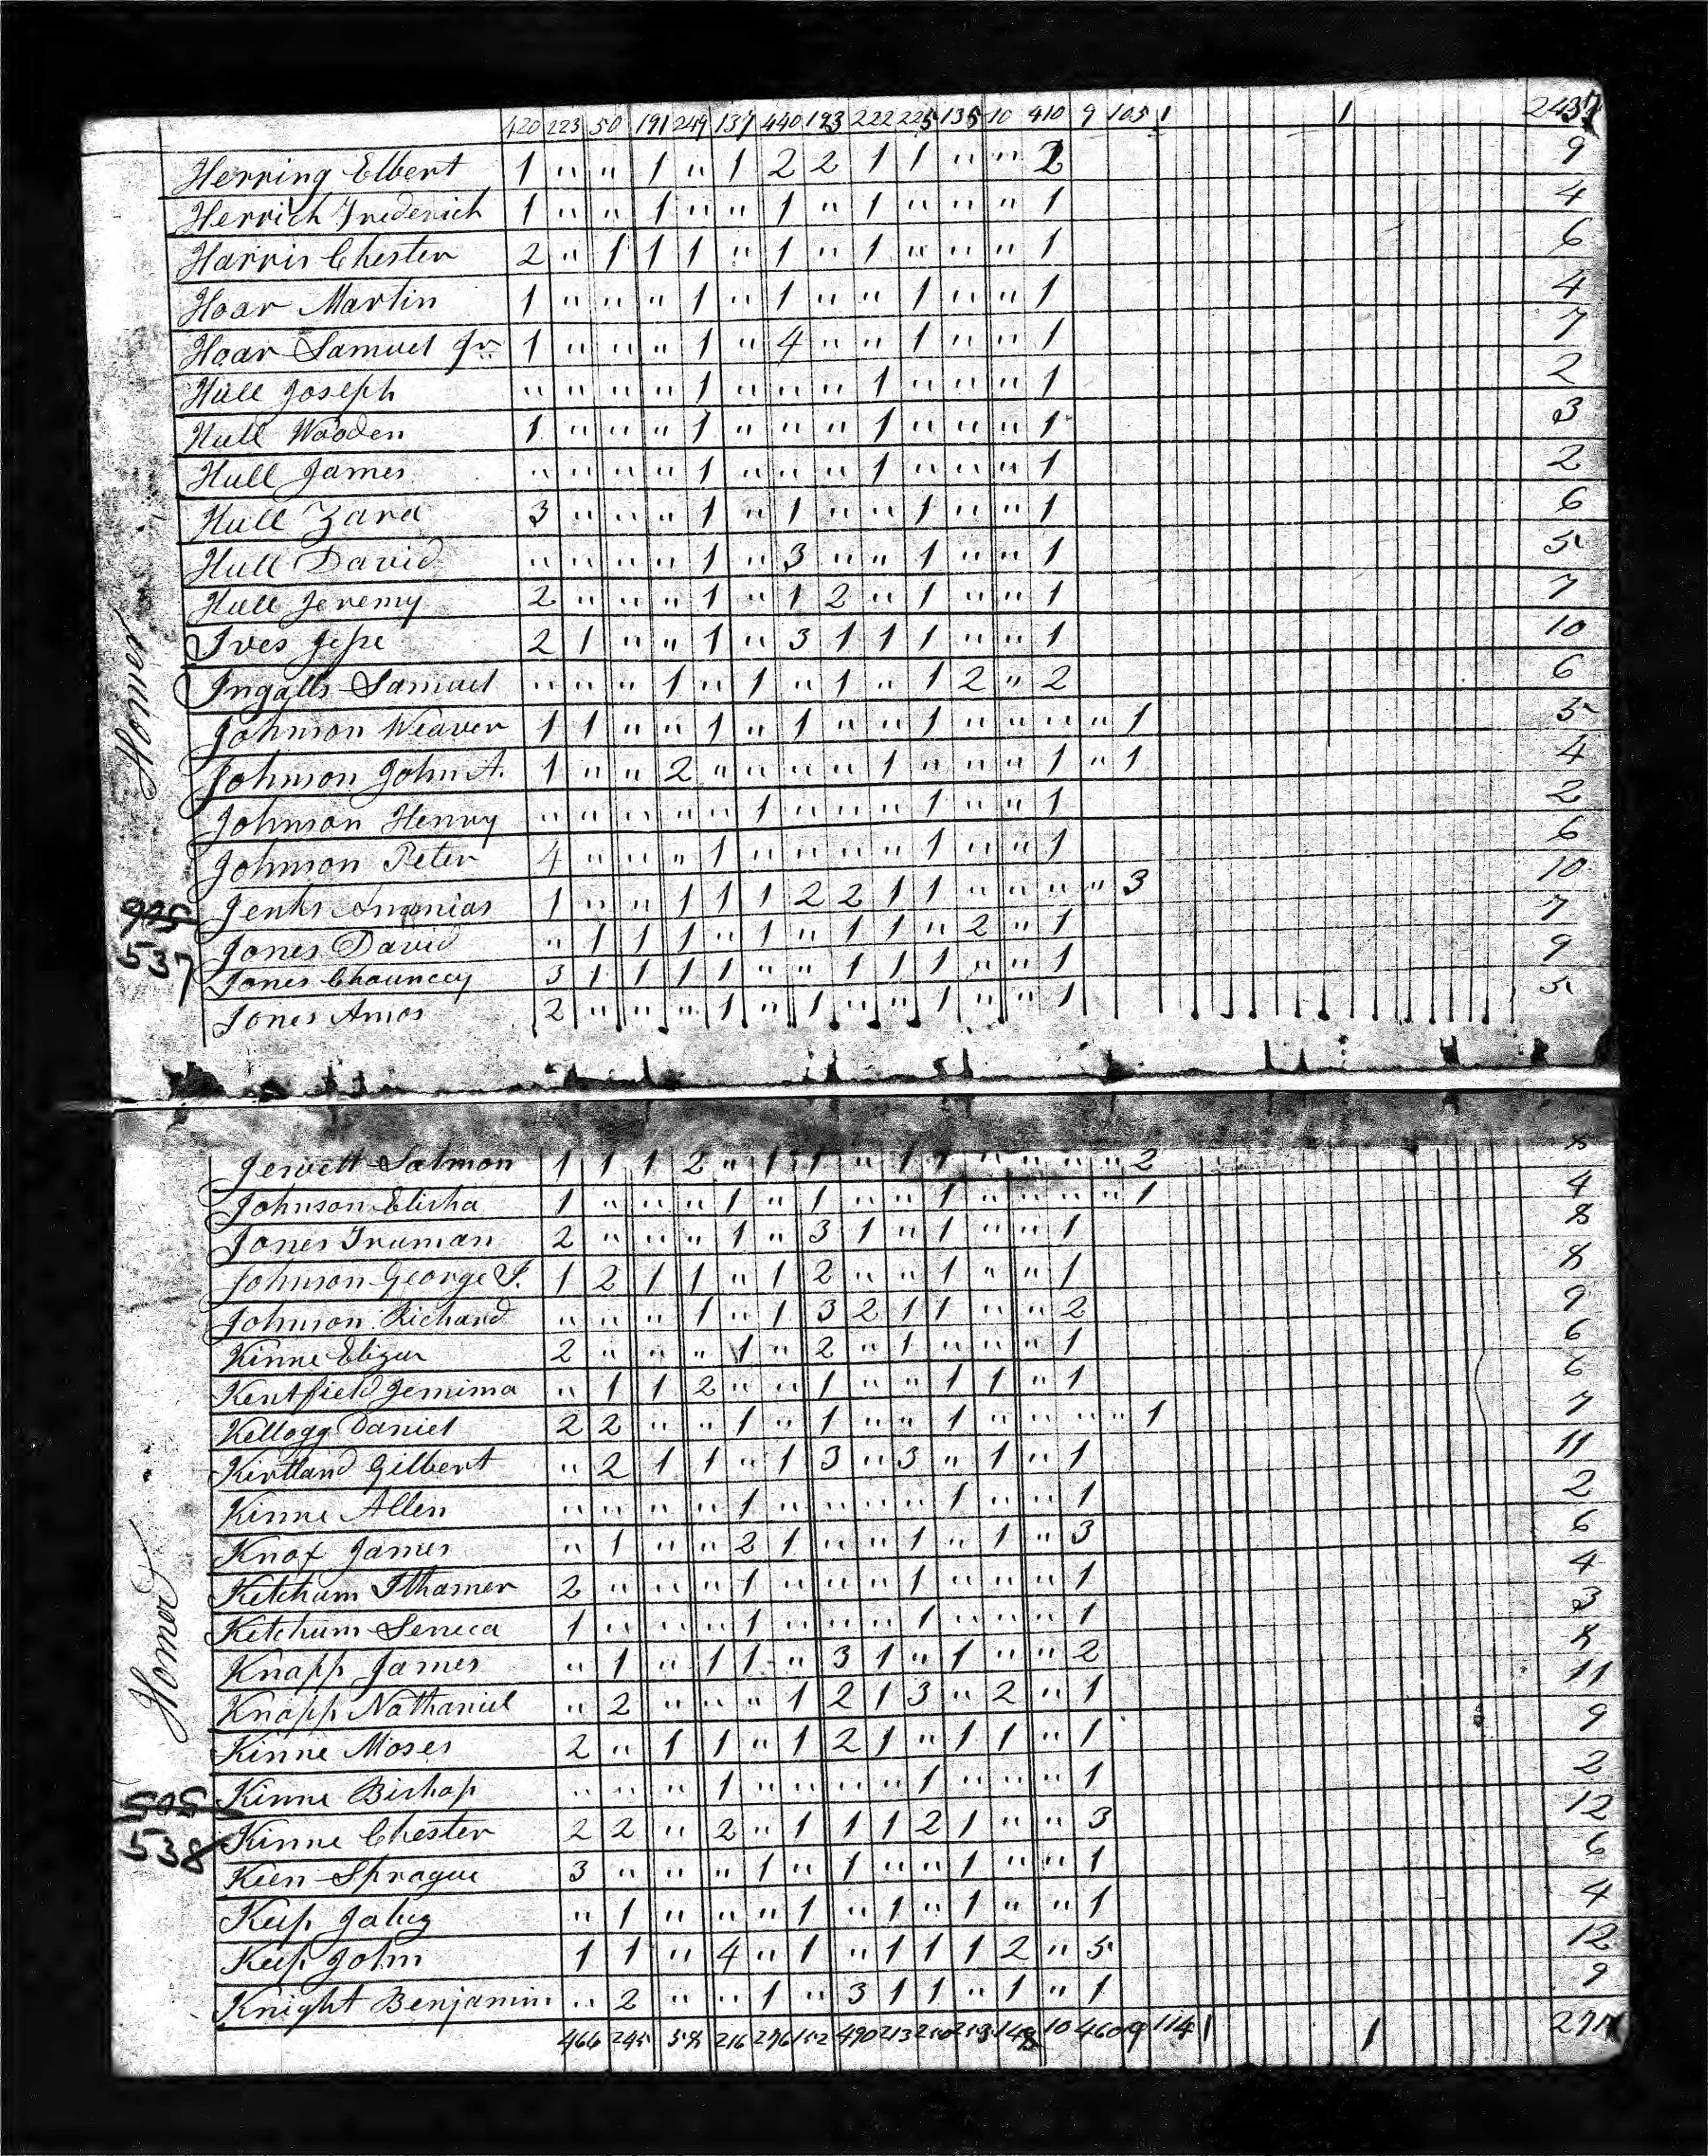 420 223 50 191 249 137 440 193 222 225 135 10 410 9 105 1 1 2437
Herring Elbert 1 " " 1 " 1 2 2 1 1 " " 2 9
Herrick Frederick 1 " " 1 " " 1 " 1 " " " 1 4
Harris Chester 2 " 1 1 1 " 1 " 1 " " " 1 6
Hoar Martin 1 " " " 1 " 1 " " 1 " " 1 4
Hoar Samuel Jr. 1 " " " 1 " 4 " " 1 " " 1 7
Hull Joseph " " " " 1 " " " 1 " " " 1 2
Hull Wooden 1 " " " 1 " " " 1 " " " 1 3
Hull James " " " " 1 " " " 1 " " " 1 2
Hull Zara 3 " " " 1 " 1 " " 1 " " 1 6
Hull David " " " " 1 " 3 " " 1 " " 1 5
Hull Jeremy 2 " " " 1 " 1 2 " 1 " " 1 7
Homer
Ives Jesse 2 1 " " 1 " 3 1 1 1 " " 1 10
Ingalls Samuel " " " 1 " 1 " 1 " 1 2 " 2 6
Johnson Weaver 1 1 " " 1 " 1 " " 1 " " " " 1 5
Johnson John A. 1 " " 2 " " " " 1 " " " 1 " 1 4
Johnson Henry " " " " " 1 " " " 1 " " 1 2
Johnson Peter 4 " " " 1 " " " " 1 " " 1 6
Jenks Ananias 1 " " 1 1 1 2 2 1 1 " " " " 3 10
Jones David " 1 1 1 " 1 " 1 1 " 2 " 1 7
537
Jones Chauncey 3 1 1 1 1 " " 1 1 1 " " 1 9
Jones Amos 2 " " " 1 " 1 " " 1 " " 1 5
Jewett Salmon 1 1 1 2 " 1 1 " 1 1 " " " " 2 8
Johnson Elisha 1 " " " 1 " 1 " " 1 " " " " 1 4
Jones Truman 2 " " " 1 " 3 1 " 1 " " 1 8
Johnson George 1 2 1 1 " 1 2 " " 1 " " 1 8
Johnson Richard " " " 1 " 1 3 2 1 1 " " 2 9
Kinne Elizur 2 " " " 1 " 2 " 1 " " " 1 6
Kentfield Jemima " 1 1 2 " " 1 " " 1 1 " 1 6
Kellogg Daniel 2 2 " " 1 " 1 " " 1 " " " " 1 7
Kirtland Gilbert " 2 1 1 " 1 3 " 3 " 1 " 1 11
Kinne Allen " " " " 1 " " " " 1 " " 1 2
Knox James " 1 " " 2 1 " " 1 " 1 " 3 6
Ketchum Ithamer 2 " " " 1 " " " 1 " " " 1 4
Homer
Ketchum Seneca 1 " " " 1 " " " 1 " " " 1 3
Knapp James " 1 " 1 1 " 3 1 " 1 " " 2 8
Knapp Nathaniel " 2 " " " 1 2 1 3 " 2 " 1 11
Kinne Moses 2 " 1 1 " 1 2 1 " 1 1 " 1 9
Kinne Bishop " " " 1 " " " " 1 " " " 1 2
Kinne Chester 2 2 " 2 " 1 1 1 2 1 " " 3 12
538
Keen Sprague 3 " " " 1 " 1 " " 1 " " 1 6
Keep Jabez " 1 " " " 1 " 1 " 1 " " 1 4
Keep John 1 1 " 4 " 1 " 1 1 1 2 " 5 12
Knight Benjamin " 2 " " 1 " 3 1 1 " 1 " 1 9
466 245 58 216 276 152 490 213 213 148 10 460 9 114 1 1